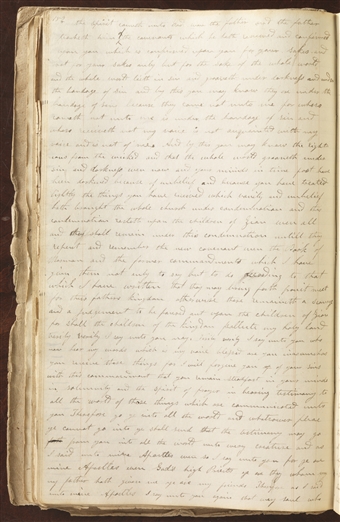 the spirit cometh unto God even the father and the father
teacheth him of the covenant which he hath renewed and confirmed
upon you which is confirmed upon you for your sakes and
not your sakes only but for the sake of the whole world
and the whole world lieth in sin and groaneth under darkness and under
the bondage of sin and by this you may know they are under the
bondage of sin because they come not unto me for whoso
cometh not unto me is under the bondage of sin and
whoso receiveth not my voice is not acquainted with my
voice and is not of me And by this you may know the right
eous from the wicked and that the whole world groaneth under
sin and darkness even now and your minds in times past have
been darkened because of unbelief and because you have treated
lightly the things you have received which vanity and unbelief
hath brought the whole church under condemnation and this
condemnation resteth upon the children of Zion even all
and they shall remain under this condemnation untill they
repent and remember the new covenant even the book of
Mormon and the former commandments which I have
given them not only to say but to do according to that
which I have written that they may bring forth fruit meet
for their fathers kingdom otherwise there remaineth a scourge
and a judgement to be poured out upon the children of Zion
for shall the children of the kingdom pollute my holy land
verily verily I say unto you nay Verily verily I say unto you who
now hear my words which is my voice blessed are you inasmuch as
you receive these things for I will forgive you of your sins
with this commandment that you remain steadfast in your minds
in solemnity and the spirit of prayer in bearing testimony to
all the world of those things which are communicated unto
you Therefore go ye into all the world and whatsoever place
ye cannot go into ye shall send that the testimony may go
from you into all the world unto every creature and as
I said unto mine Apostles even so I say unto you for you are
mine Apostles even Gods high Priests ye are they whom
my father hath given me ye are my friends Therefore as I said
unto mine Apostles I say unto you again that every soul who